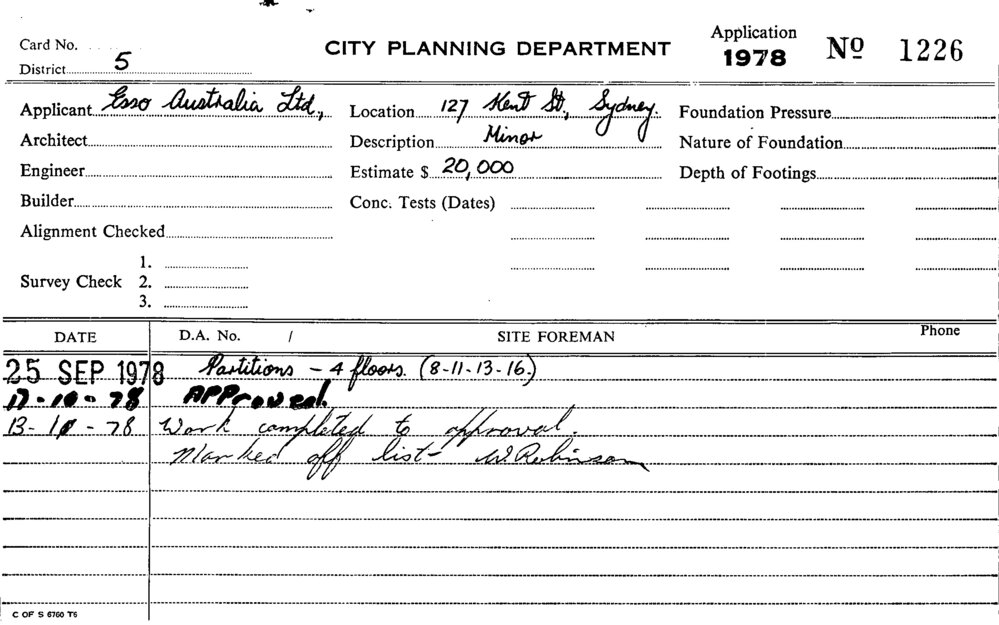 Card No.
District 5
CITY PLANNING DEPARTMENT
Application
1978
No 1226
Applicant Esso Australia Ltd., Location 127 Kent St., Sydney. Foundation Pressure
Architect Description Minor Nature of Foundation
Engineer Estimate $ 20,000 Depth of Footings
Builder Conc. Tests (Dates)
Alignment Checked
1.
Survey Check 2.
3.
DATE D.A. No. / SITE FOREMAN Phone
25 SEP 1978 Partitions - 4 floors. (8-11-13-16.)
-10-78 APProved.
13-1 -78 Work completed to approval.
Marked off list- W. Robinson
C OF S 6760 T6